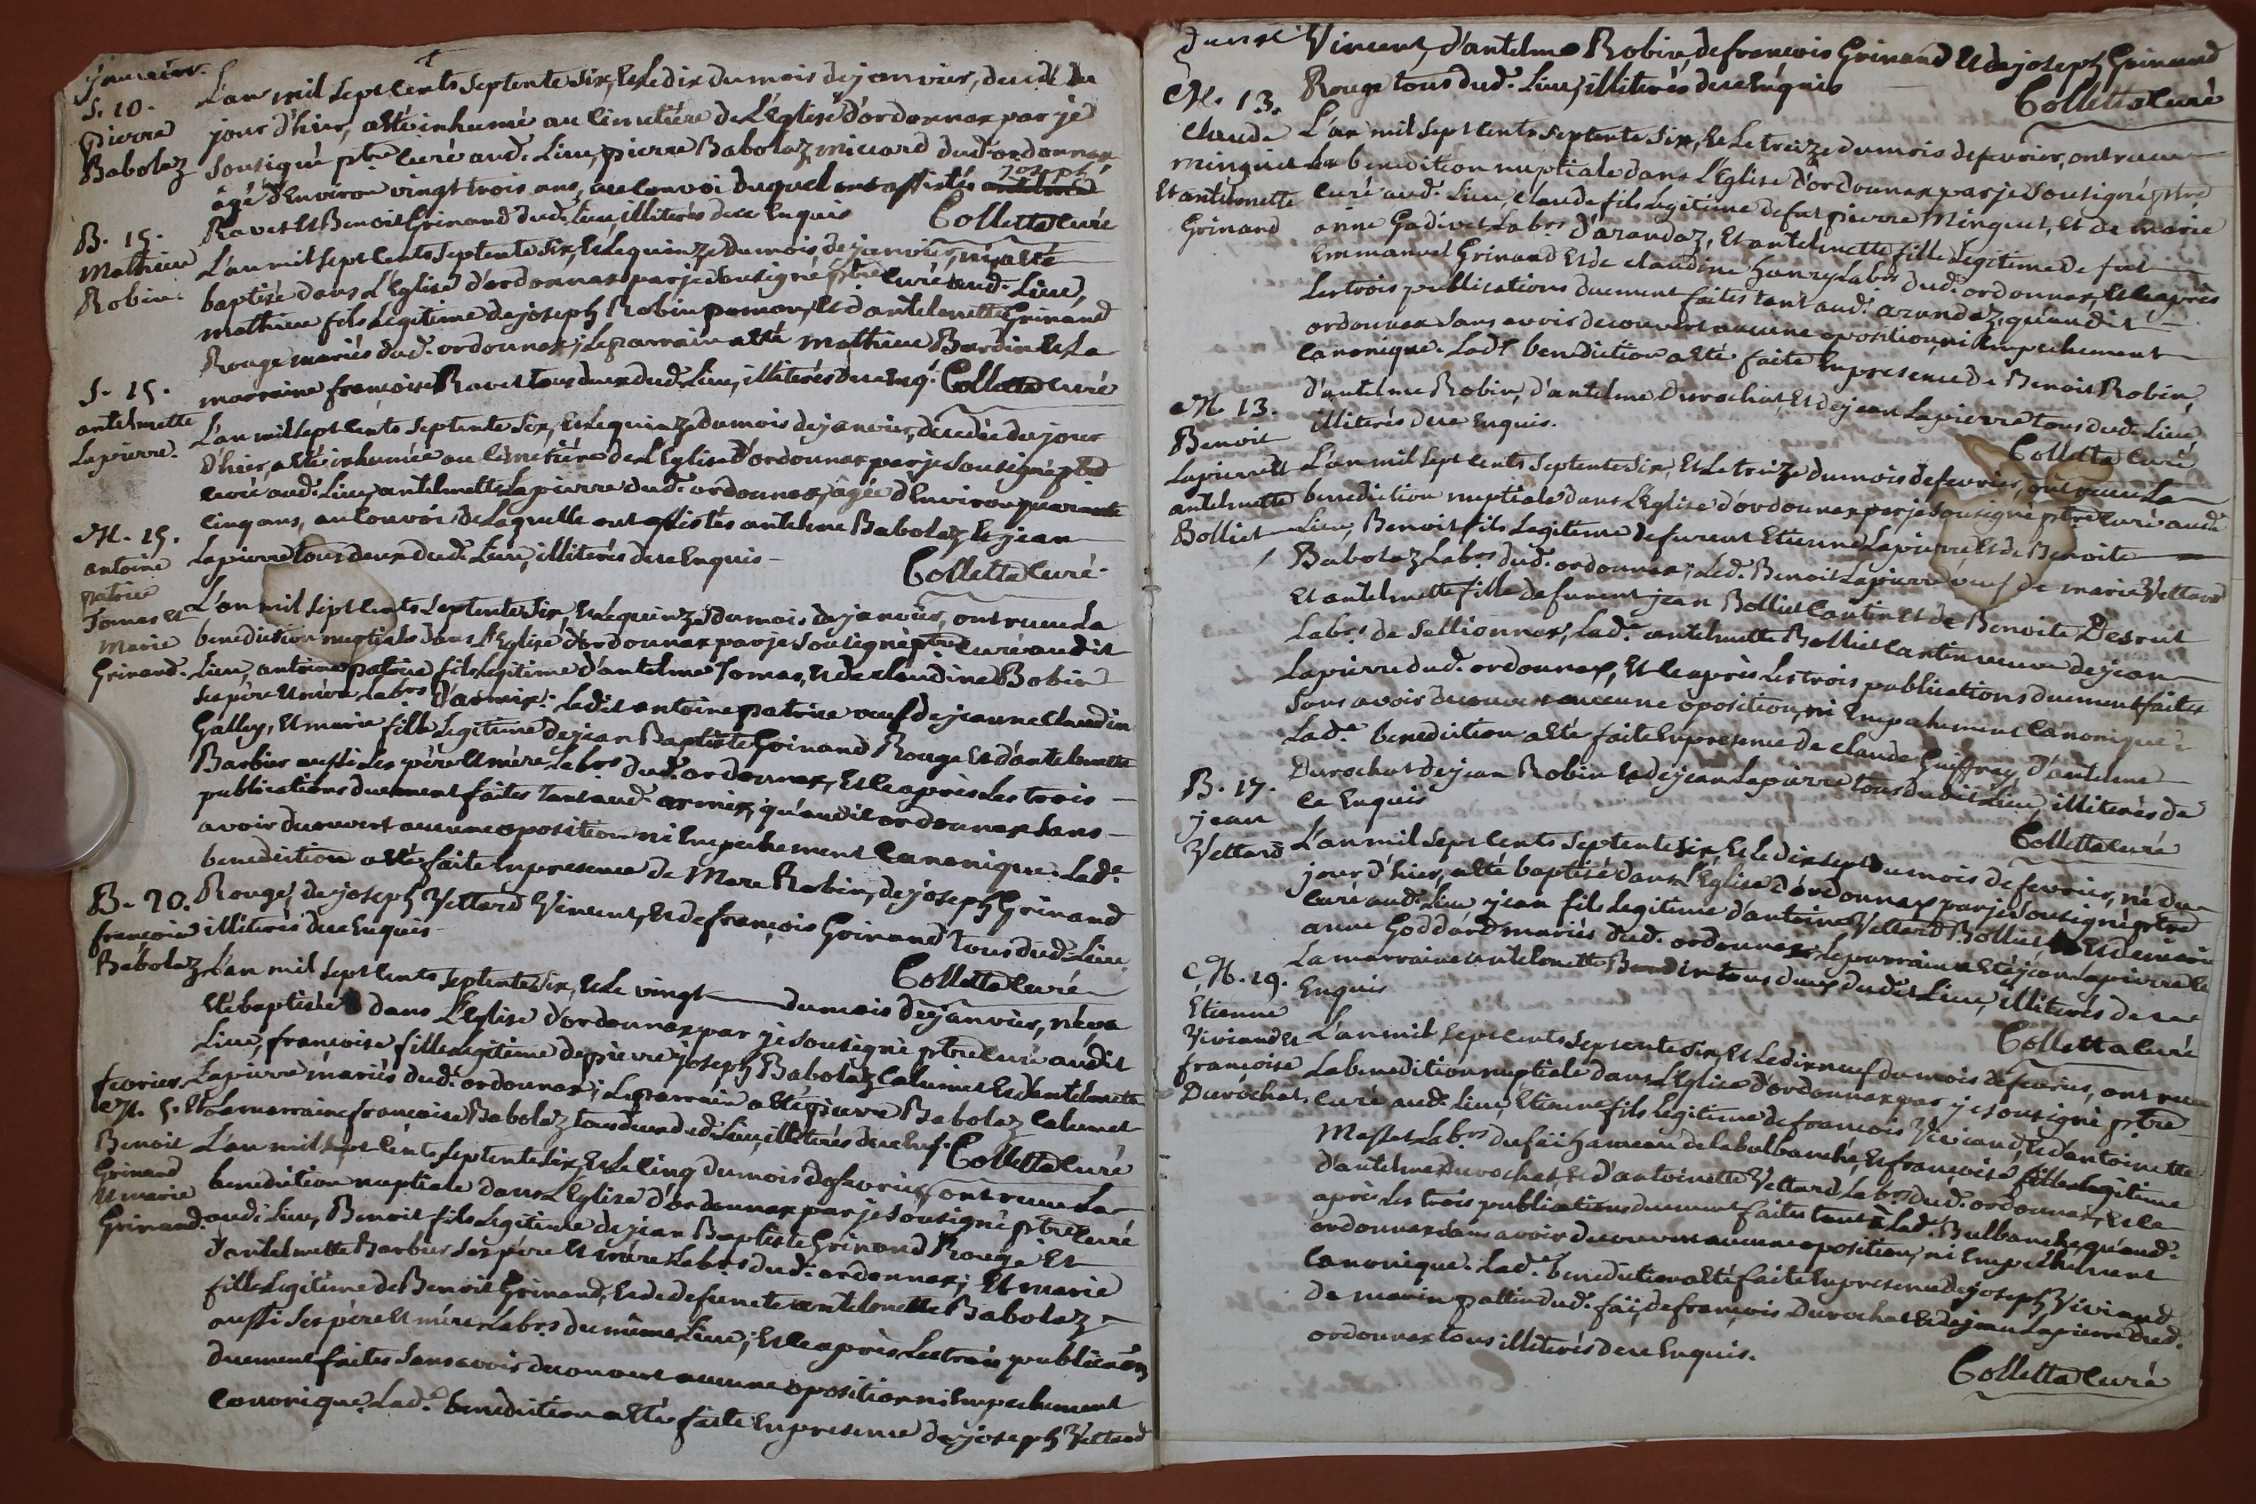 janvier.
S. 10.
Pierre
Babolaz
L'an mil sept cents septente six, et le dix du mois de janvier, decédé du
jour d'hier, a été inhumé au cimetiére de L'Eglise d'ordonnax par je
sousigné ptre curé aud. Lieu, pierre Babolaz miccard dud. ordonnax,
âgé d'Environ vingt trois ans, au convoi duquel ont assistés joseph
Ravet et Benoit Grinand dud. Lieu, illiterés de ce Enquis
Colletta curé
B. 15.
Mathieu
Robin.
L'an mil sept cents septente six, et le quinze du mois de janvier, né, a été
baptisé dans L'Eglise d'ordonnax par je sousigné ptre curé aud. Lieu,
mathieu fils Legitime de joseph Robin et d'antelmette Grinand
Rouge mariés dud. ordonnax; Le parrain a été mathieu Bardin et La
marraine françoise Ravet tous deux dud. Lieu, illiterés de ce Enq. Colletta curé
S. 15.
antelmette
Lapierre.
L'an mil sept cents septente six, et le quinze du mois de janvier, decedée du jour
d'hier, a été inhumée au cimetiére de L'Eglise d'ordonnax par je sousigné ptre
curé aud. Lieu, antelmette Lapierre dud. ordonnax, âgée d'Environ quarante
cinq ans, au convoi de Laquelle ont assistés antelme Babolaz et jean
Lapierre tous deux dud. Lieu, illiterés de ce Enquis -
Colletta curé.
M. 15.
antoine
patrice
Tomas et
Marie
Grinand.
L'an mil sept cents septente six, et le quinze du mois de janvier, ont recu La
benediction nuptiale dans L'Eglise d'ordonnax par je sousigné ptre curé audit
Lieu, antoine patrice fils Legitime d'antelme Tomas, et de claudine Bobin
ses père et mère Labrs. d'armix: Ledit antoine patrice veuf de jeanne claudin
Galley, et marie fille Legitime de jean Baptiste Grinand Rouge et d'antelmette
Barbier aussi ses père et mère Labrs. dud. ordonnax, et ce après Les trois
publications duement faites tant aud. armix, qu'audit ordonnax sans
avoir decouvert aucune oposition ni Empechement canonique. Lade.
benediction a été faite En presence de Marc Robin, de joseph Grinand
Rouge, de joseph Vettard Vincent, et de françois Grinand tous dud. Lieu,
illiterés de ce Enquis
Colletta curé
B. 20.
françoise
Babolaz
L'an mil sept cents septente six, et le vingt du mois de janvier, née, a
été baptisée dans L'Eglise d'ordonnax par je sousigné ptre curé audit
Lieu, françoise fille Legitime de pierre joseph Babolaz calumet et d'antelmette
Lapierre mariés dud. ordonnax; Le parrain a été pierre Babolaz calumet
et La marraine françoise Babolaz tous deux dud. Lieu, illiterés de ce Enq. Colletta curé
fevrier.
M. 5.
Benoit
Grinand
et marie
Grinand.
L'an mil sept cents septente six, et le cinq du mois de fevrier, ont recu La
benediction nuptiale dans L'Eglise d'ordonnax par je sousigné ptre curé
aud. Lieu, Benoit fils Legitime de jean Baptiste Grinand Rouge et
d'antelmette Barbier ses père et mère Labrs. dud. ordonnax; Et marie
fille Legitime de Benoit Grinand, et de defuncte antelmette Babolaz
aussi ses père et mère Labrs. du même Lieu; et ce après Les trois publicaōns
duement faites sans avoir decouvert aucune oposition ni Empechement
canonique. Lade. benediction a été faite En presence de joseph Vettard
Vincent, d'antelme Robin, de françois Grinand et de joseph Grinand
Rouge tous dud. Lieu, illiterés de ce Enquis
Colletta curé
M. 13.
Claude
minguet
Et antelmette
Grinand
L'an mil sept cents septente six, et le treize du mois de fevrier, ont recu
La benediction nuptiale dans L'Eglise d'ordonnax par je sousigné ptre
curé aud. Lieu, claude fils Legitime de fut pierre Minguet, et de marie
anne Gadivet Labrs. d'arandaz, Et antelmette fille Legitime de fut
Emmanuel Grinand et de claudine Hanrey Labrs. dud. ordonnax, et ce après
Les trois publications duement faites tant aud. arandaz, qu'audit
ordonnax sans avoir decouvert aucune oposition, ni Empechement
canonique. Lade. benediction a été faite En presence de Benoit Robin,
d'antelme Robin, d'antelme Durochat, et de jean Lapierre tous dud. Lieu
illiterés de ce Enquis.
Colletta curé
M. 13.
Benoit
Lapierre et
antelmette
Bolliet
L'an mil sept cents septente six, Et le treize du mois de fevrier, ont recu La
benediction nuptiale dans L'Eglise d'ordonnax par je sousigné ptre curé aud.
Lieu, Benoit fils Legitime de furent Etienne Lapierre et de Benoite
Babolaz Labrs. dud. ordonnax; Led. Benoit Lapierre veuf de marie Vettard
Et antelmette fille de furent jean Bolliet Cantin et de Benoite Desrut
Labrs. de Sellionnax, Lade. antelmette Bolliet Cantin veuve de jean
Lapierre dud. ordonnax, et ce après Les trois publications duement faites
sans avoir decouvert aucune oposition, ni Empechement canonique.
Lade. benediction a été faite En presence de claude Guiffrey, d'antelme
Durochat de jean Robin et de jean Lapierre tous dudit Lieu, illiterés de
ce Enquis
Colletta curé
B. 17.
jean
Vettard
L'an mil sept cents septente six, et le dix sept du mois de fevrier, né du
jour d'hier, a été baptisé dans L'Eglise d'ordonnax par je sousigné ptre
curé aud. Lieu jean fils Legitime d'antoine Vettard Bolliet et de marie
anne Goddard mariés dud. ordonnax: Le parrain a été jean Lapierre et
La marraine antelmette Bardin tous deux dudit Lieu, illiterés de ce
Enquis
Colletta curé
M. 19.
Etienne
Viviand et
françoise
Durochat.
L'an mil sept cents septente six, et le dix neuf du mois de fevrier, ont recu
La benediction nuptiale dans L'Eglise d'ordonnax par je sousigné ptre
curé aud. Lieu, Etienne fils Legitime de françois Viviand, et d'antoinette
Massat Labrs. du faÿ hameau de la bulbanche, et françoise fille Legitime
d'antelme durochat, et d'antoinette Vettard Labrs. dud. ordonnax, et ce
après Les trois publications duement faites tant à Lade. Bulbanche, qu'aud.
ordonnax sans avoir decouvert aucune oposition, ni Empechement
canonique. Lade. benediction a été faite En presence de joseph Viviand
de marin pattin dud. faÿ, de françois Durochat et de jean Lapierre dud.
ordonnax tous illiterés de ce Enquis.
Colletta curé